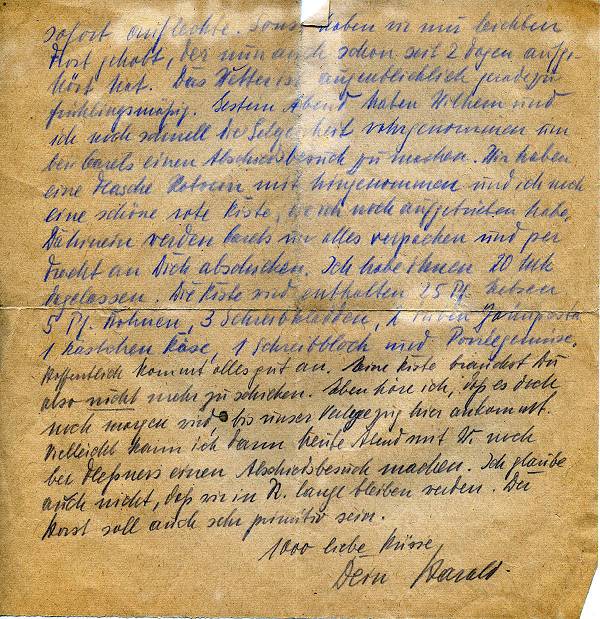 sofort auflechte. Sonst haben wir nur leichten
Frost gehabt, der nun auch schon seit 2 Tagen aufge-
hört hat. Das Wetter ist augenblicklich geradezu
frühlingsmäßig. Gestern Abend haben Wilhelm und
ich noch schnell die Gelegenheit wahrgenommen um
bei Carels einen Abschiedsbesuch zu machen. Wir haben
eine Flasche Rotwein mit hingenommen und ich noch
eine schöne rote Kiste, die ich noch aufgetrieben habe.
Dahinein werden Carels nun alles verpacken und per
Fracht an Dich abschicken. Ich habe Ihnen 20 Mk
dagelassen. Die Kiste wird enthalten 25 Pf. Erbsen
5 Pf. Bohnen, 3 Schreibkladden, 2 Tuben Zahnpasta
1 Kästchen Käse, 1 Schreibblock und Porréegemüse.
Hoffentlich kommt alles gut an. Seine Kiste brauchst Du
also nicht mehr zu schicken. Eben höre ich, daß es doch
noch morgen wird bis unser Verlegezug hier ankommt.
Vielleicht kann ich dann heute Abend mit W. noch
bei Meßners einen Abschiedsbesuch machen. Ich glaube
auch nicht, daß wir in N. lange bleiben werden. Der
Horst soll auch sehr primitiv sein.
1000 liebe Küsse
Dein Harald.